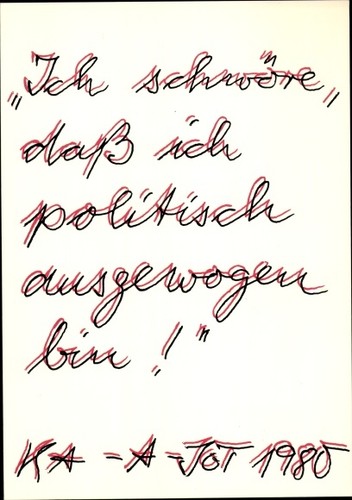 „Ich schwöre„
daß ich
politisch
ausgewogen
bin !"
KA-A-JOT 1980